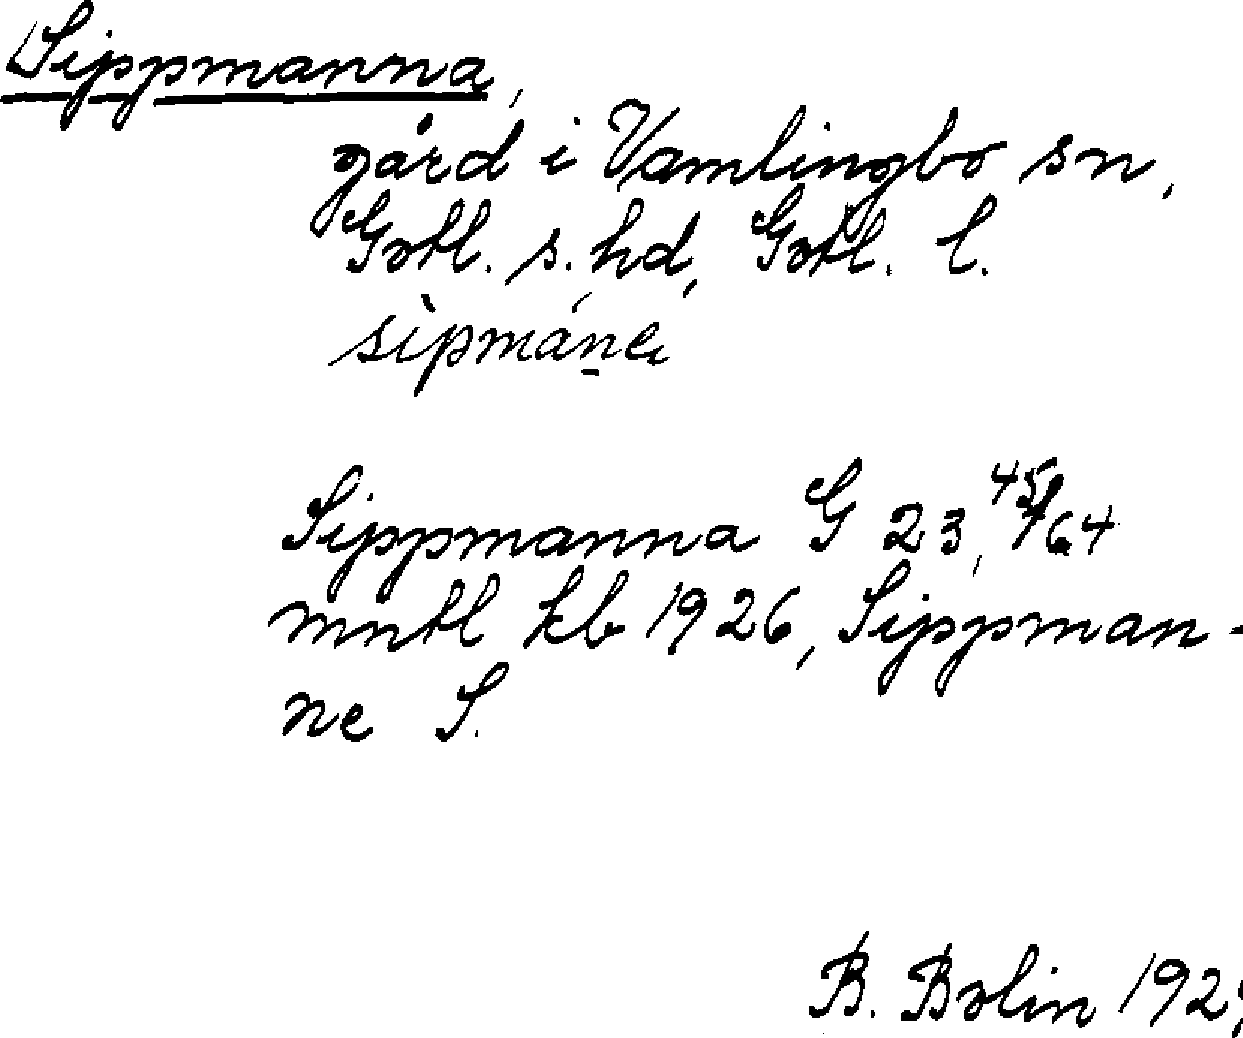 Sippmanna,
gård i Vamlingbo sn,
Gotl. s. hd, Gotl. l.
sìpmána
Sippmanna G 23, 45/64
mntl kb 1926, Sippman-
ne S.
B. Bolin 192